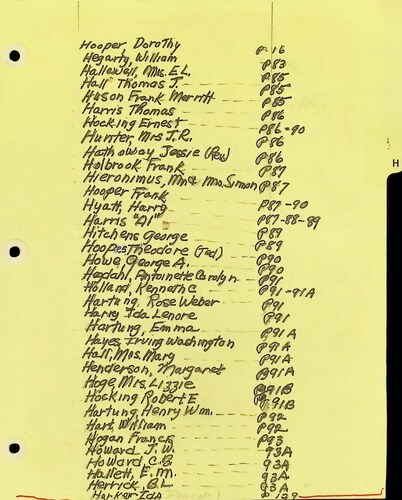 Hooper, Dorothy P-16
Hegarty, William P83
Hallewell, Mrs. E.L. P.85
Hall Thomas J. P85
Huson Frank Merritt P85
Harris Thomas P86
Hocking Ernest P86-90
Hunter, Mrs J.R. P86
Hathoway Jessie (Rev) P86
Holbrook Frank P87
Hieronimus, Mr & Mrs. Simon P87
Hooper Frank
Hyatt, Harry P87-90
Harris "Al" P87-88-89
Hitchens George P89
Hoopes Theodore (Ted) P89
Howe, George A. P90
Hegdahl, Antoinette Carolyn P90
Holland, Kenneth C P91
Hartung, Rose Weber P91-91A
Harry Ida Lenore P91
Hartung, Emma P91
Hayes, Irving Washington P91A
Hall, Mrs. Mary P91A
Henderson, Margaret P91A
Hoge, Mrs. Lizzie P91A
Hocking Robert E P91B
Hartung, Henry Wm. P91B
Hart, William P92
Hogan Francis P92
Howard J. W. P93
Howard C.B 93A
Hallett, E. M. 93A
Herrick, B.L 93A
Harker Ida P 139
H